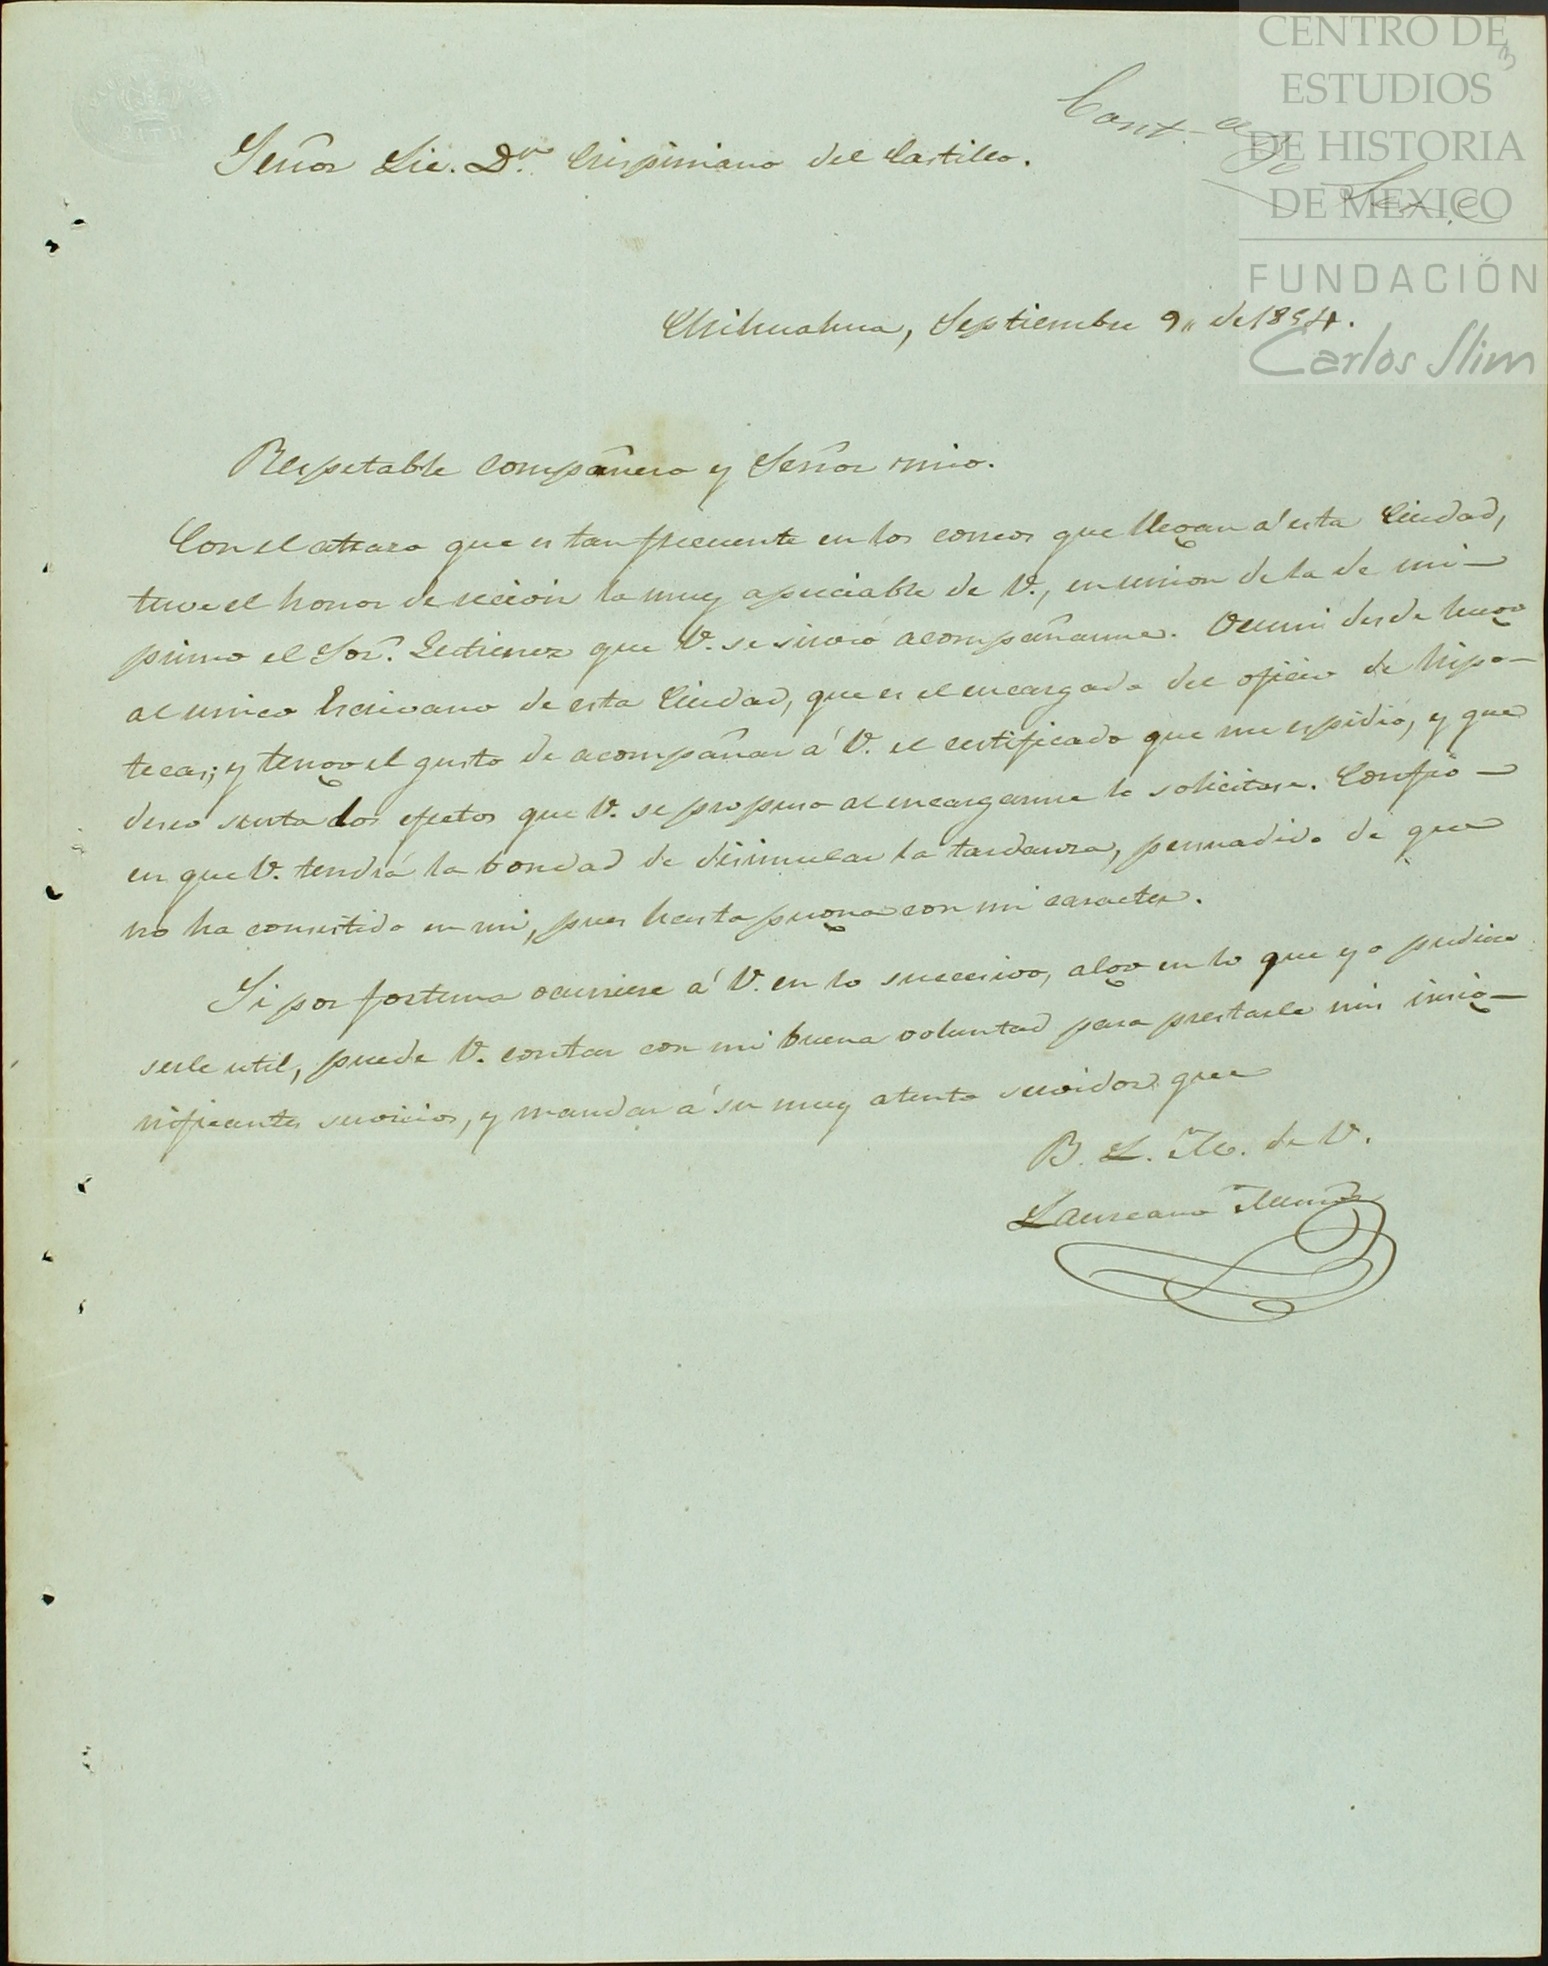 CENTRO DE
ESTUDIOS
DE HISTORIA
DE MEXICO
FUNDACIÓN
Carlos Slim
3
BATH
Cont.
Señor Lic. Dn. Crispiniano del Castillo.
Chihuahua, Septiembre 9,, de 1854.
Respetable compañero y Señor mio.
Con el atrazo que es tan frecuente en los correos que llegan á esta Ciudad,
tuve el honor de recivir la muy apreciable de V., en union de la de mi
primo el Sor. Gutierrez que V. se sirvió acompañarme. Ocurri desde luego
al unico Escrivano de esta Ciudad, que es el encargado del oficio de hipo-
tecas; y tengo el gusto de acompañar á V. el certificado que me espidió, y que
deseo surta los efectos que V. se propuso al encargarme lo solicitase. Confio
en que V. tendrá la bondad de disimular la tardanza, persuadido de que
no ha consistido en mi, pues hasta pugna con mi caracter.
Si por fortuna ocurriese á V. en lo succesivo, algo en lo que yo pudiese
serle util, puede V. contar con mi buena voluntad para prestarle mis insig-
nificantes servicios, y mandar á su muy atento servidor que
B. L. M. de V.
Laureano Muñoz